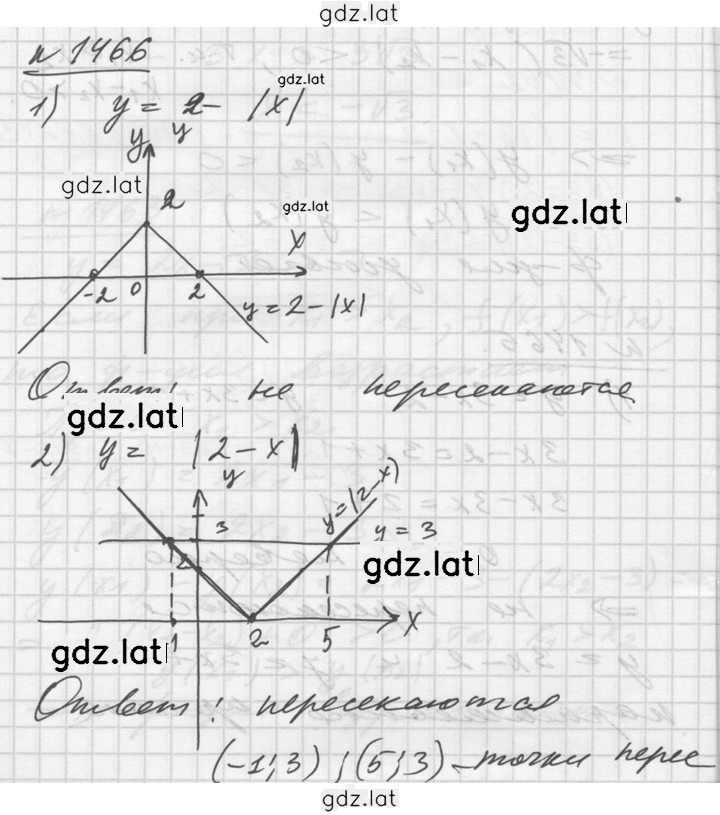 gdz.lat
№ 1466
gdz.lat
1) y = 2 - |x|
y y
gdz.lat 2 gdz.lat
gdz.lat
x
-2 0 2
y = 2 - |x|
Ответ: не пересекаются
gdz.lat
2) y = |2 - x|
y
y = |2 - x|
3 y = 3
2 gdz.lat
x
gdz.lat 1 2 5
Ответ: пересекаются
(-1; 3) ; (5; 3) - точки перес
gdz.lat